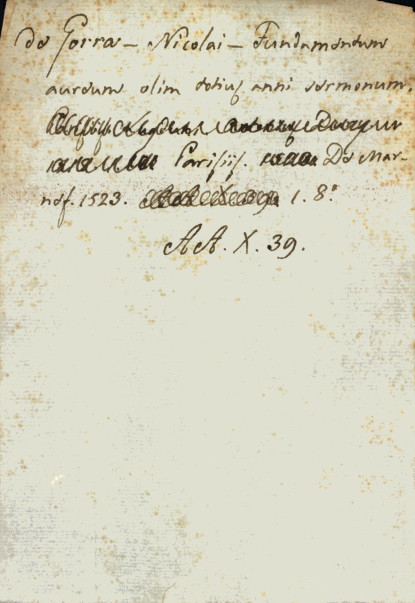 de Gorra - Nicolai - Fundamentum
aureum olim totius anni sermonum.
Parisiis. De Mar-
nef. 1523. 1. 8º
AA. X. 39.